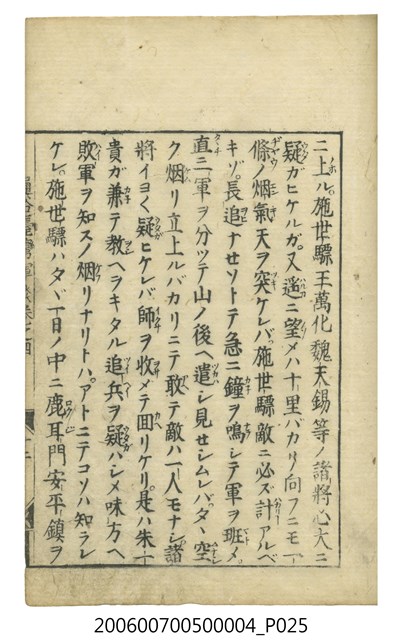 ニ上ル施世驃王萬化魏天錫等ノ諸將心大ニ
疑ガヒケルガ又遙ニ望メハ十里バカリ向フニモ一
條ノ烟氣天ヲ突ケレバ施世驃敵ニ必ズ計アルベ
キゾ長追ナセソトテ急ニ鐘ヲ鳴シテ軍ヲ班メ
直ニ軍ヲ分ツテ山ノ後ヘ遣シ見せシムレバタヽ空
ク烟リ立上ルバカリニテ敢テ敵ハ一人モナシ諸
將イヨ〱疑ヒケレバ師ヲ收メテ囬リケリ是ハ朱一
貴ガ兼テ教ヘヲキタル追兵ヲ疑ハシメ味方ヘ
敗軍ヲ知スノ烟リナリトハアトニテコソハ知ラレ
ケレ施世驃ハタヾ一日ノ中ニ鹿耳門安平鎮ヲ
200600700500004_P025